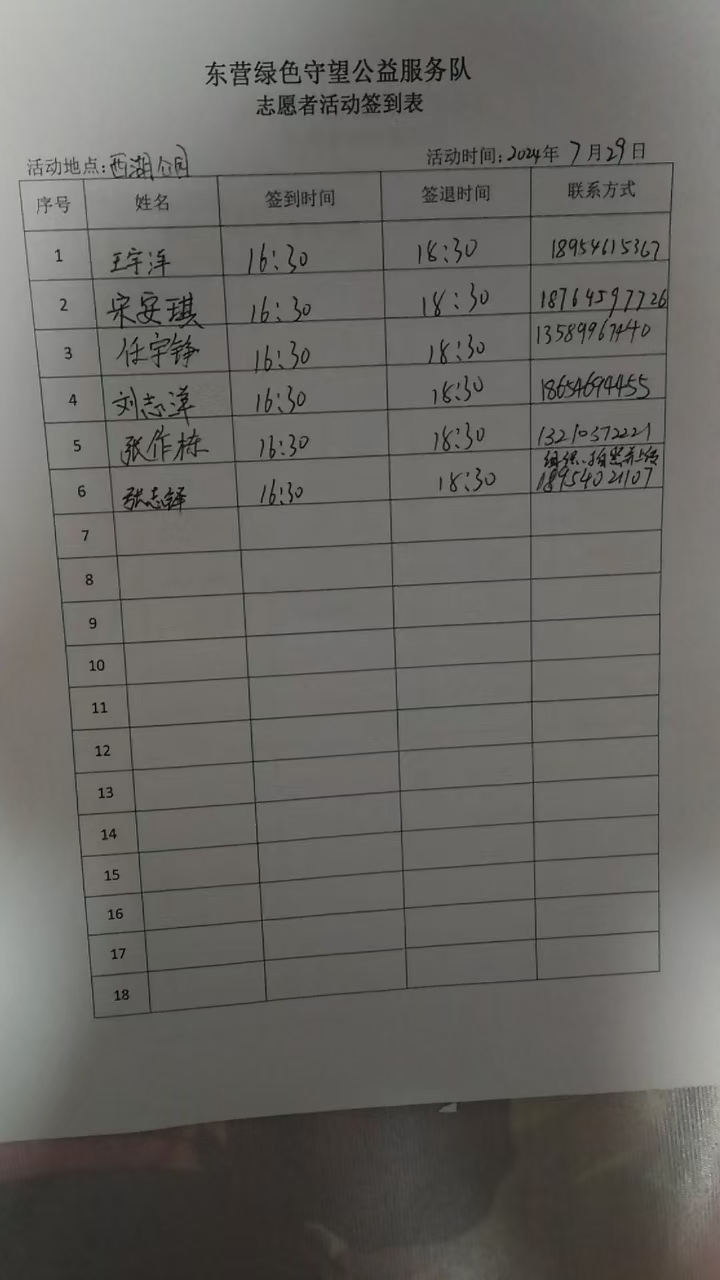 东营绿色守望公益服务队
志愿者活动签到表
活动地点:西湖公园 活动时间:2024年7月29日
序号 姓名 签到时间 签退时间 联系方式
1 王宇泽 16:30 18:30 18954615367
2 宋安琪 16:30 18:30 18764597726
3 任宇铮 16:30 18:30 13589967440
4 刘志萍 16:30 18:30 18654694455
5 张作栋 16:30 18:30 13210372221
组织、拍照并上传
6 张志铎 16:30 18:30 18954021107
7
8
9
10
11
12
13
14
15
16
17
18